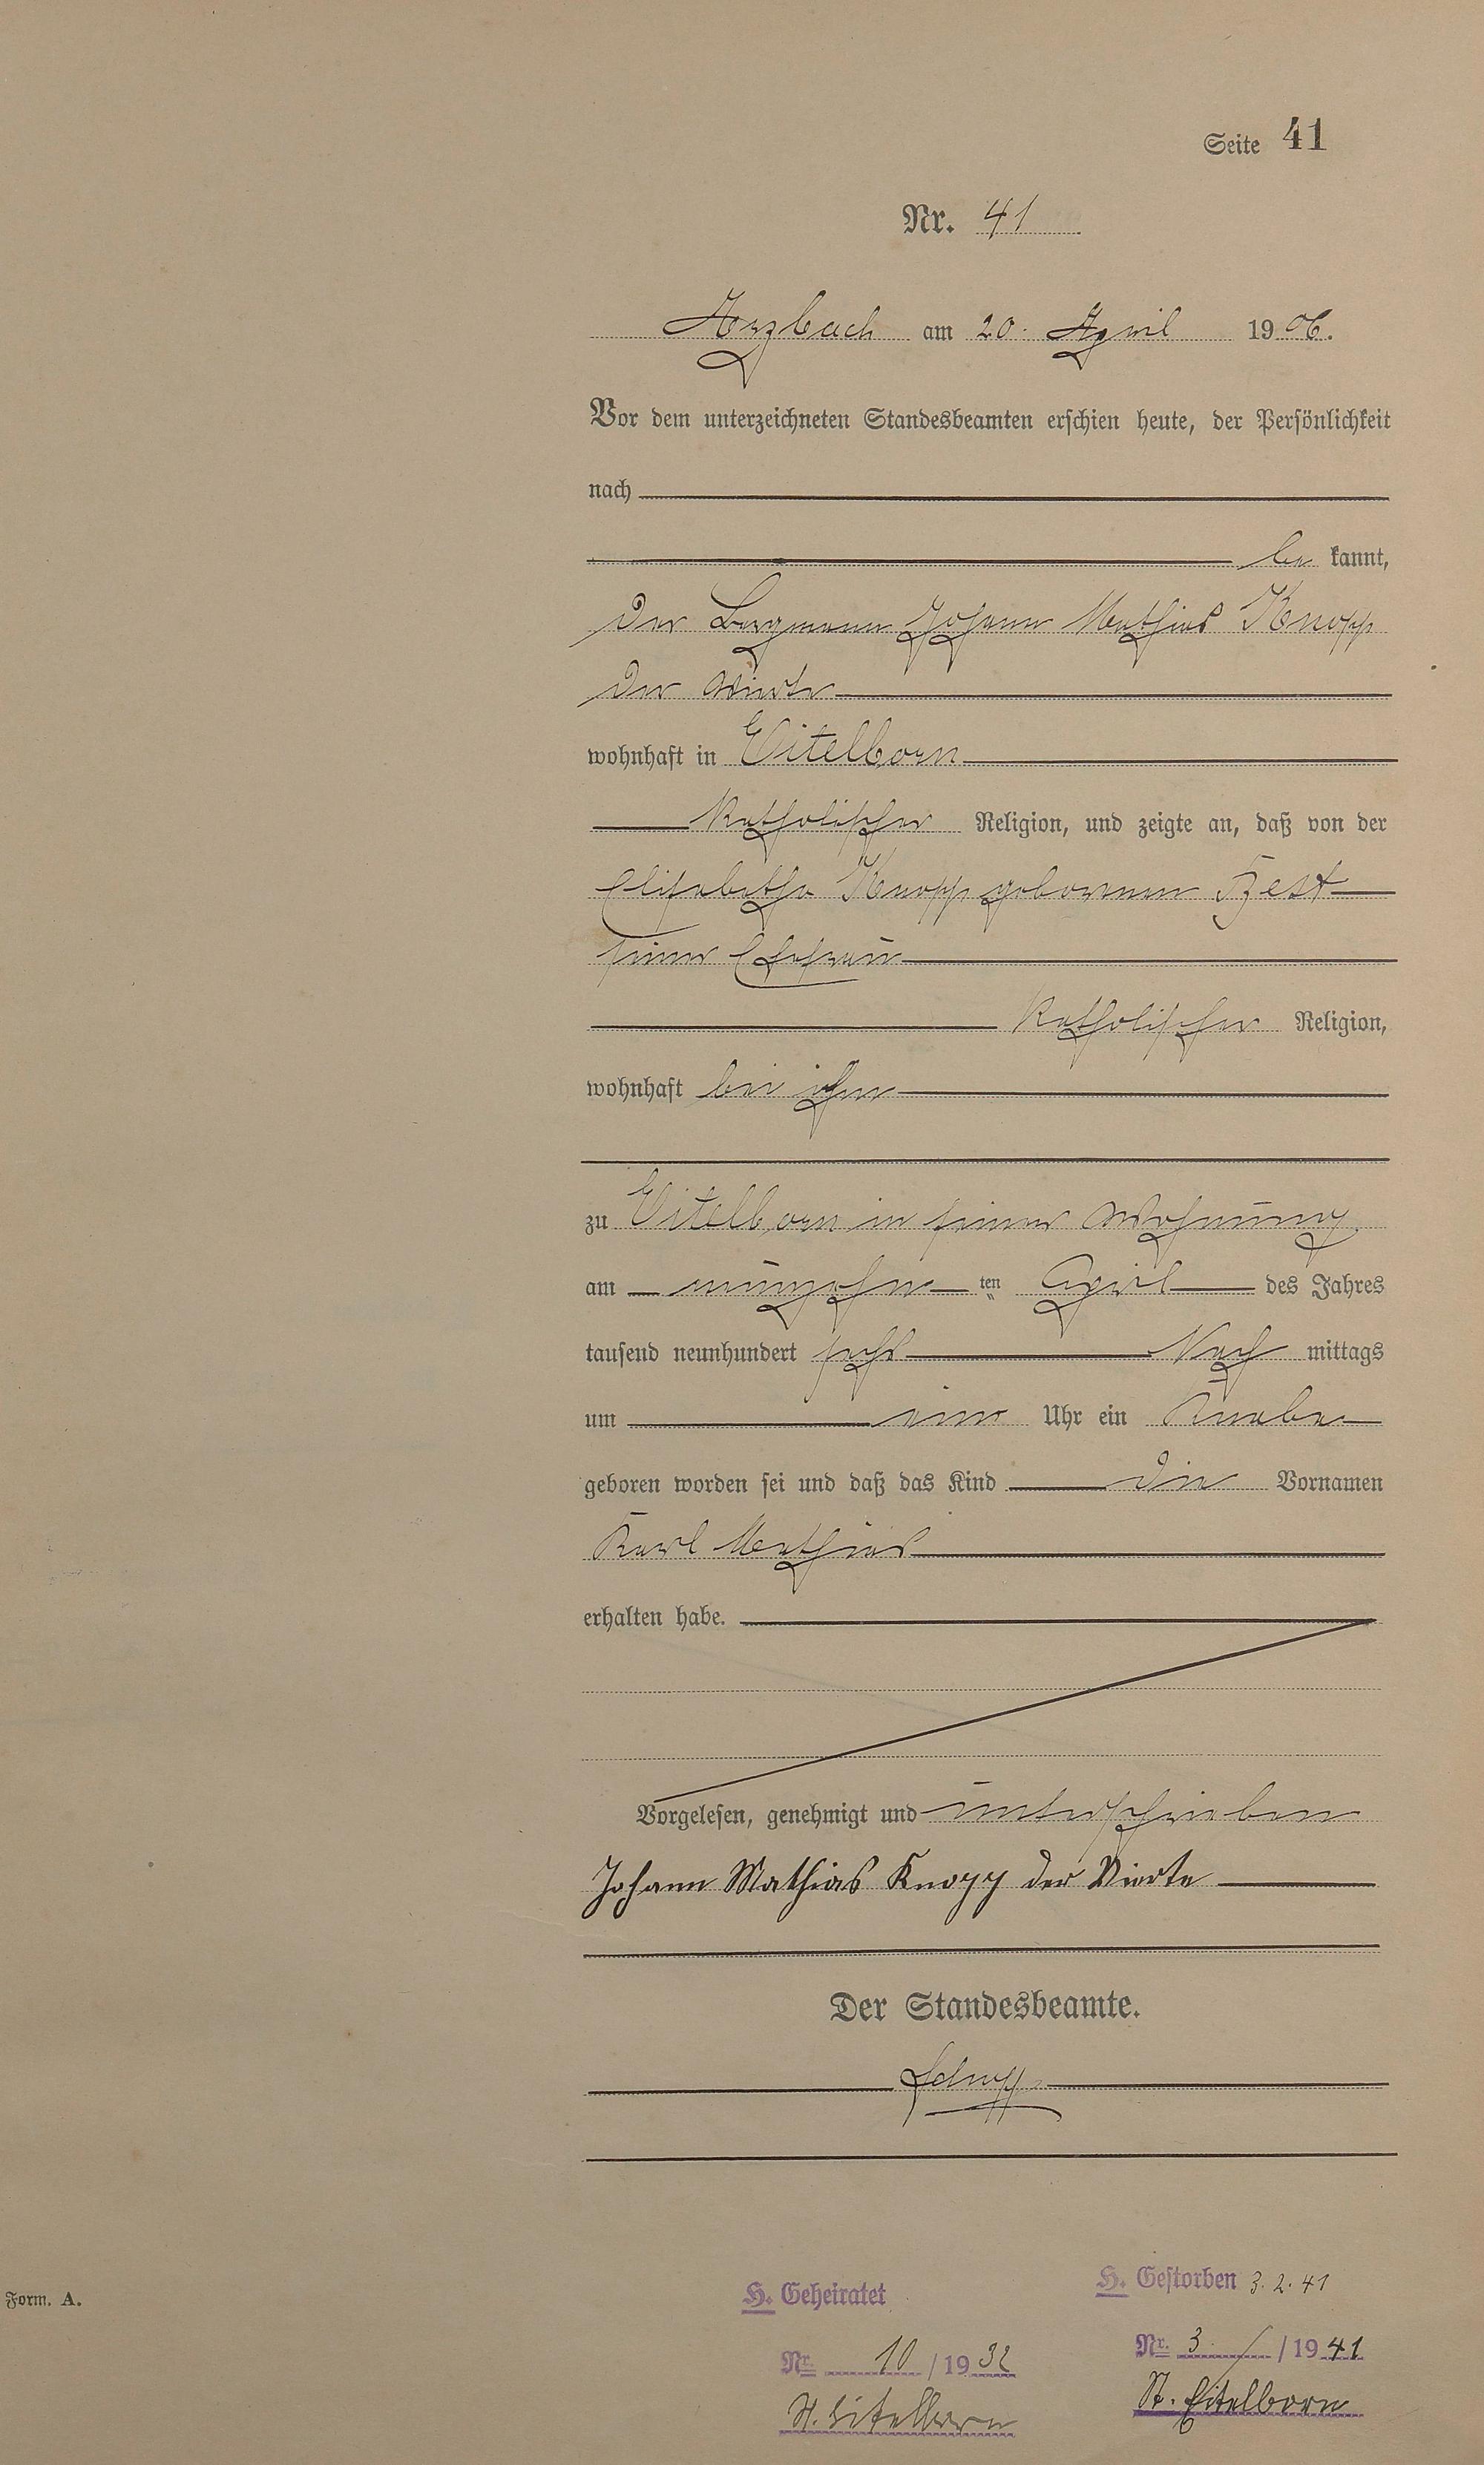 Seite 41
Nr. 41
Arzbach am 20. April 1906.
Vor dem unterzeichneten Standesbeamten erschien heute, der Persönlichkeit
nach
be kannt,
der Bergmann Johann Mathias Knopp
der Vierte
wohnhaft in Eitelborn
katholischer Religion, und zeigte an, daß von der
Elisabetha Knopp geborenen
seiner Ehefrau
katholischer Religion,
wohnhaft bei ihm
zu Eitelborn in seiner Wohnung
am neunzehn ten April des Jahres
tausend neunhundert sechs Nach mittags
um ein Uhr ein Knabe
geboren worden sei und daß das Kind die Vornamen
Karl Mathias
erhalten habe.
Vorgelesen, genehmigt und unterschrieben
Johann Mathias Knopp der Vierte
Der Standesbeamte.
H. Geheiratet
Nr. 10 / 1932
St. Eitelborn
H. Gestorben 3.2.41
Nr. 3 / 1941
St. Eitelborn
Form. A.